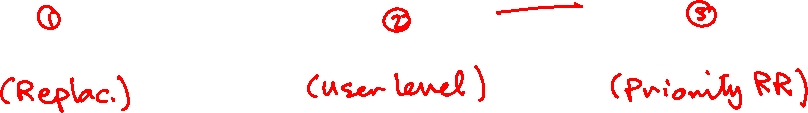 ① ② ③
(Replac.) (User level) (Priority RR)